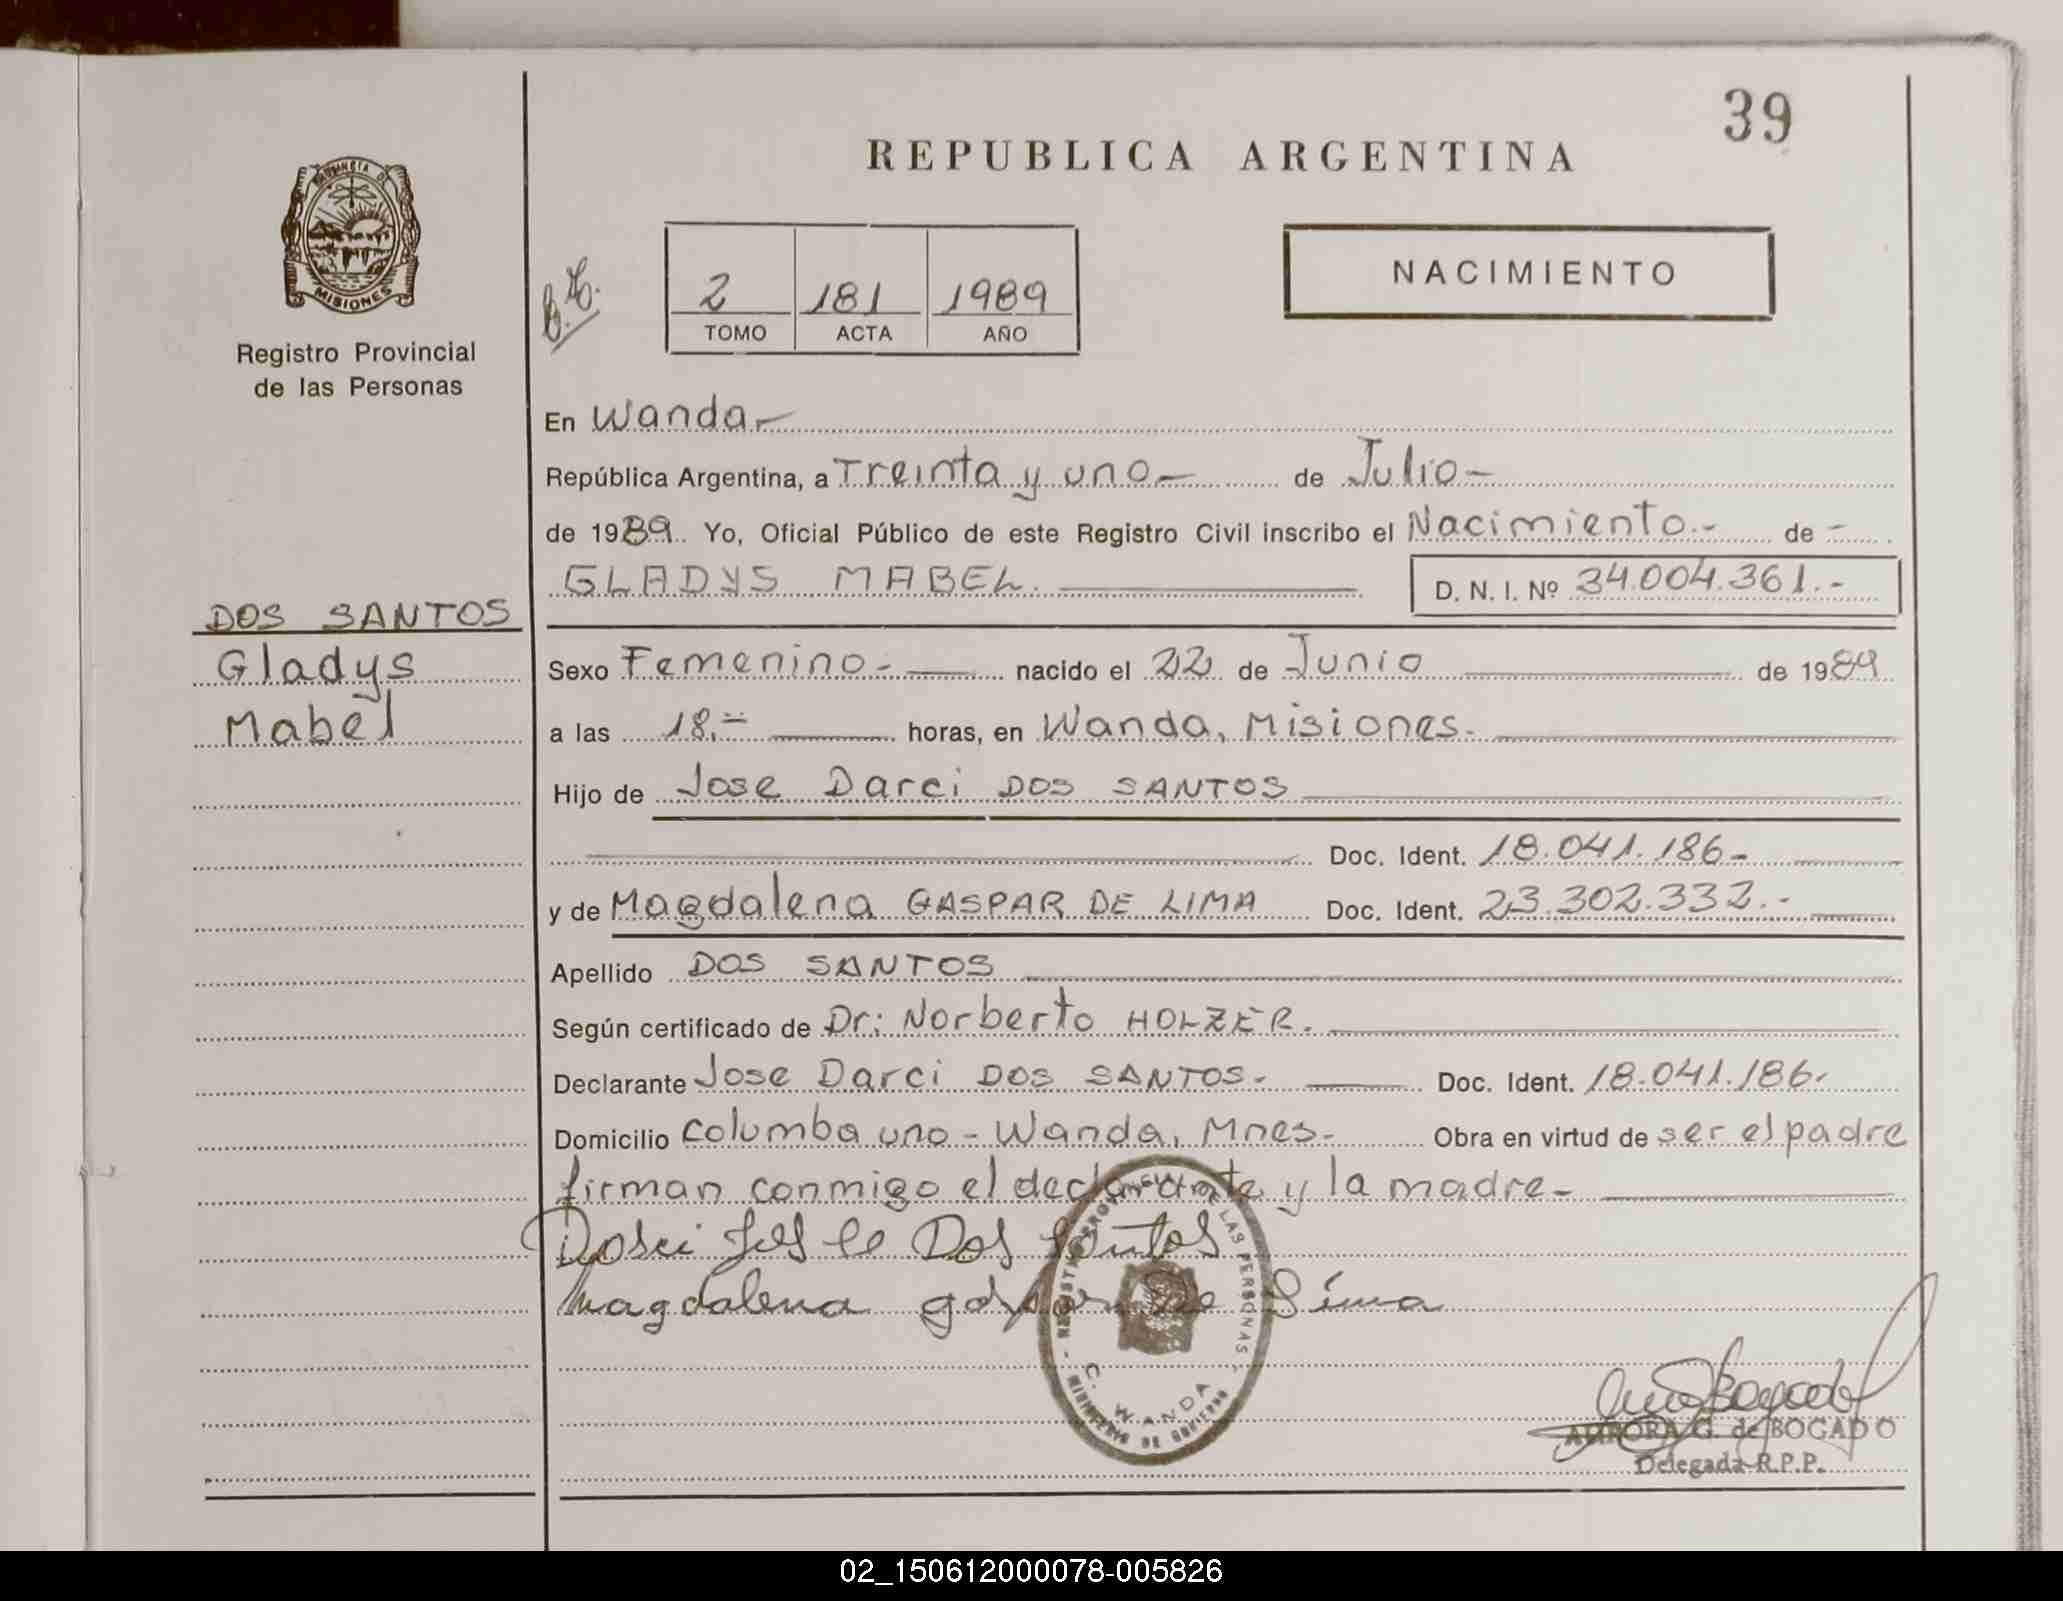 39
REPUBLICA ARGENTINA
PROVINCIA DE
MISIONES
Registro Provincial
de las Personas
2 181 1989
TOMO ACTA AÑO
NACIMIENTO
En Wanda.-
República Argentina, a Treinta y uno.- de Julio-
de 1989. Yo, Oficial Público de este Registro Civil inscribo el Nacimiento.- de -
GLADYS MABEL.
D. N. I. Nº 34.004.361.-
DOS SANTOS
Gladys
Mabel
Sexo Femenino.- nacido el 22 de Junio de 1989
a las 18.= horas, en Wanda, Misiones.
Hijo de Jose Darci DOS SANTOS
Doc. Ident. 18.041.186-
y de Magdalena GASPAR DE LIMA Doc. Ident. 23.302.332.-
Apellido DOS SANTOS
Según certificado de Dr: Norberto HOLZER.
Declarante Jose Darci DOS SANTOS.- Doc. Ident. 18.041.186.
Domicilio Columba uno - Wanda, Mnes.- Obra en virtud de ser el padre
firman conmigo el declarante y la madre-
Dos Santos
Magdalena gaspar de Lima
REGISTRO PROVINCIAL DE LAS PERSONAS
C. WANDA
MINISTERIO DE GOBIERNO
AURORA G. de BOGADO
Delegada R.P.P.
02_150612000078-005826